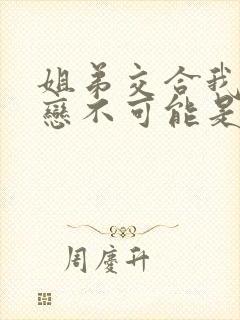 姐弟交合我
戀不可能是
周慶升